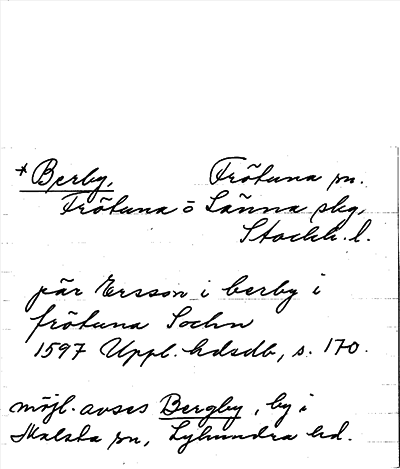 * Berby. Frötuna sn.
Frötuna o Länna skg.
Stockh. l.
pär Ersson i berby i
frötuna Sochn
1597 Uppl. hdsdb, s. 170.
möjl. avses Bergby, by i
Malsta sn, Lyhundra hd.